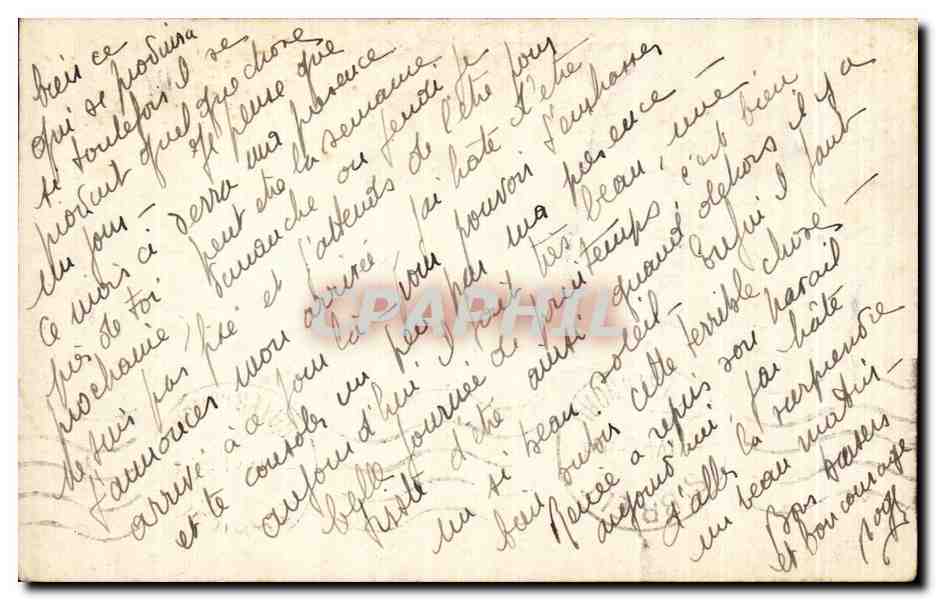 bien ce
qui se produira
si toutefois il se
produit quelque chose
un jour — Je pense que
ce mois ci verra ma présence
près de toi peut etre la semaine
prochaine, dimanche ou lundi je
ne suis pas fixé et j'attends de l'être pour
t'annoncer mon arrivée. J'ai hâte d'etre
arrivé à ce jour là pour pouvoir t'embrasser
et te consoler un peu par ma présence
aujourd'hui il fait très beau, une
belle journée de printemps c'est bien
triste d'etre ainsi quand dehors il y a
un si beau soleil — Enfin il faut
bien subir cette terrible chose —
Renée a repris son travail
aujourd'hui j'ai hâte
d'aller la surprendre
un beau matin —
Bons baisers
et bon courage
CPAPHIL